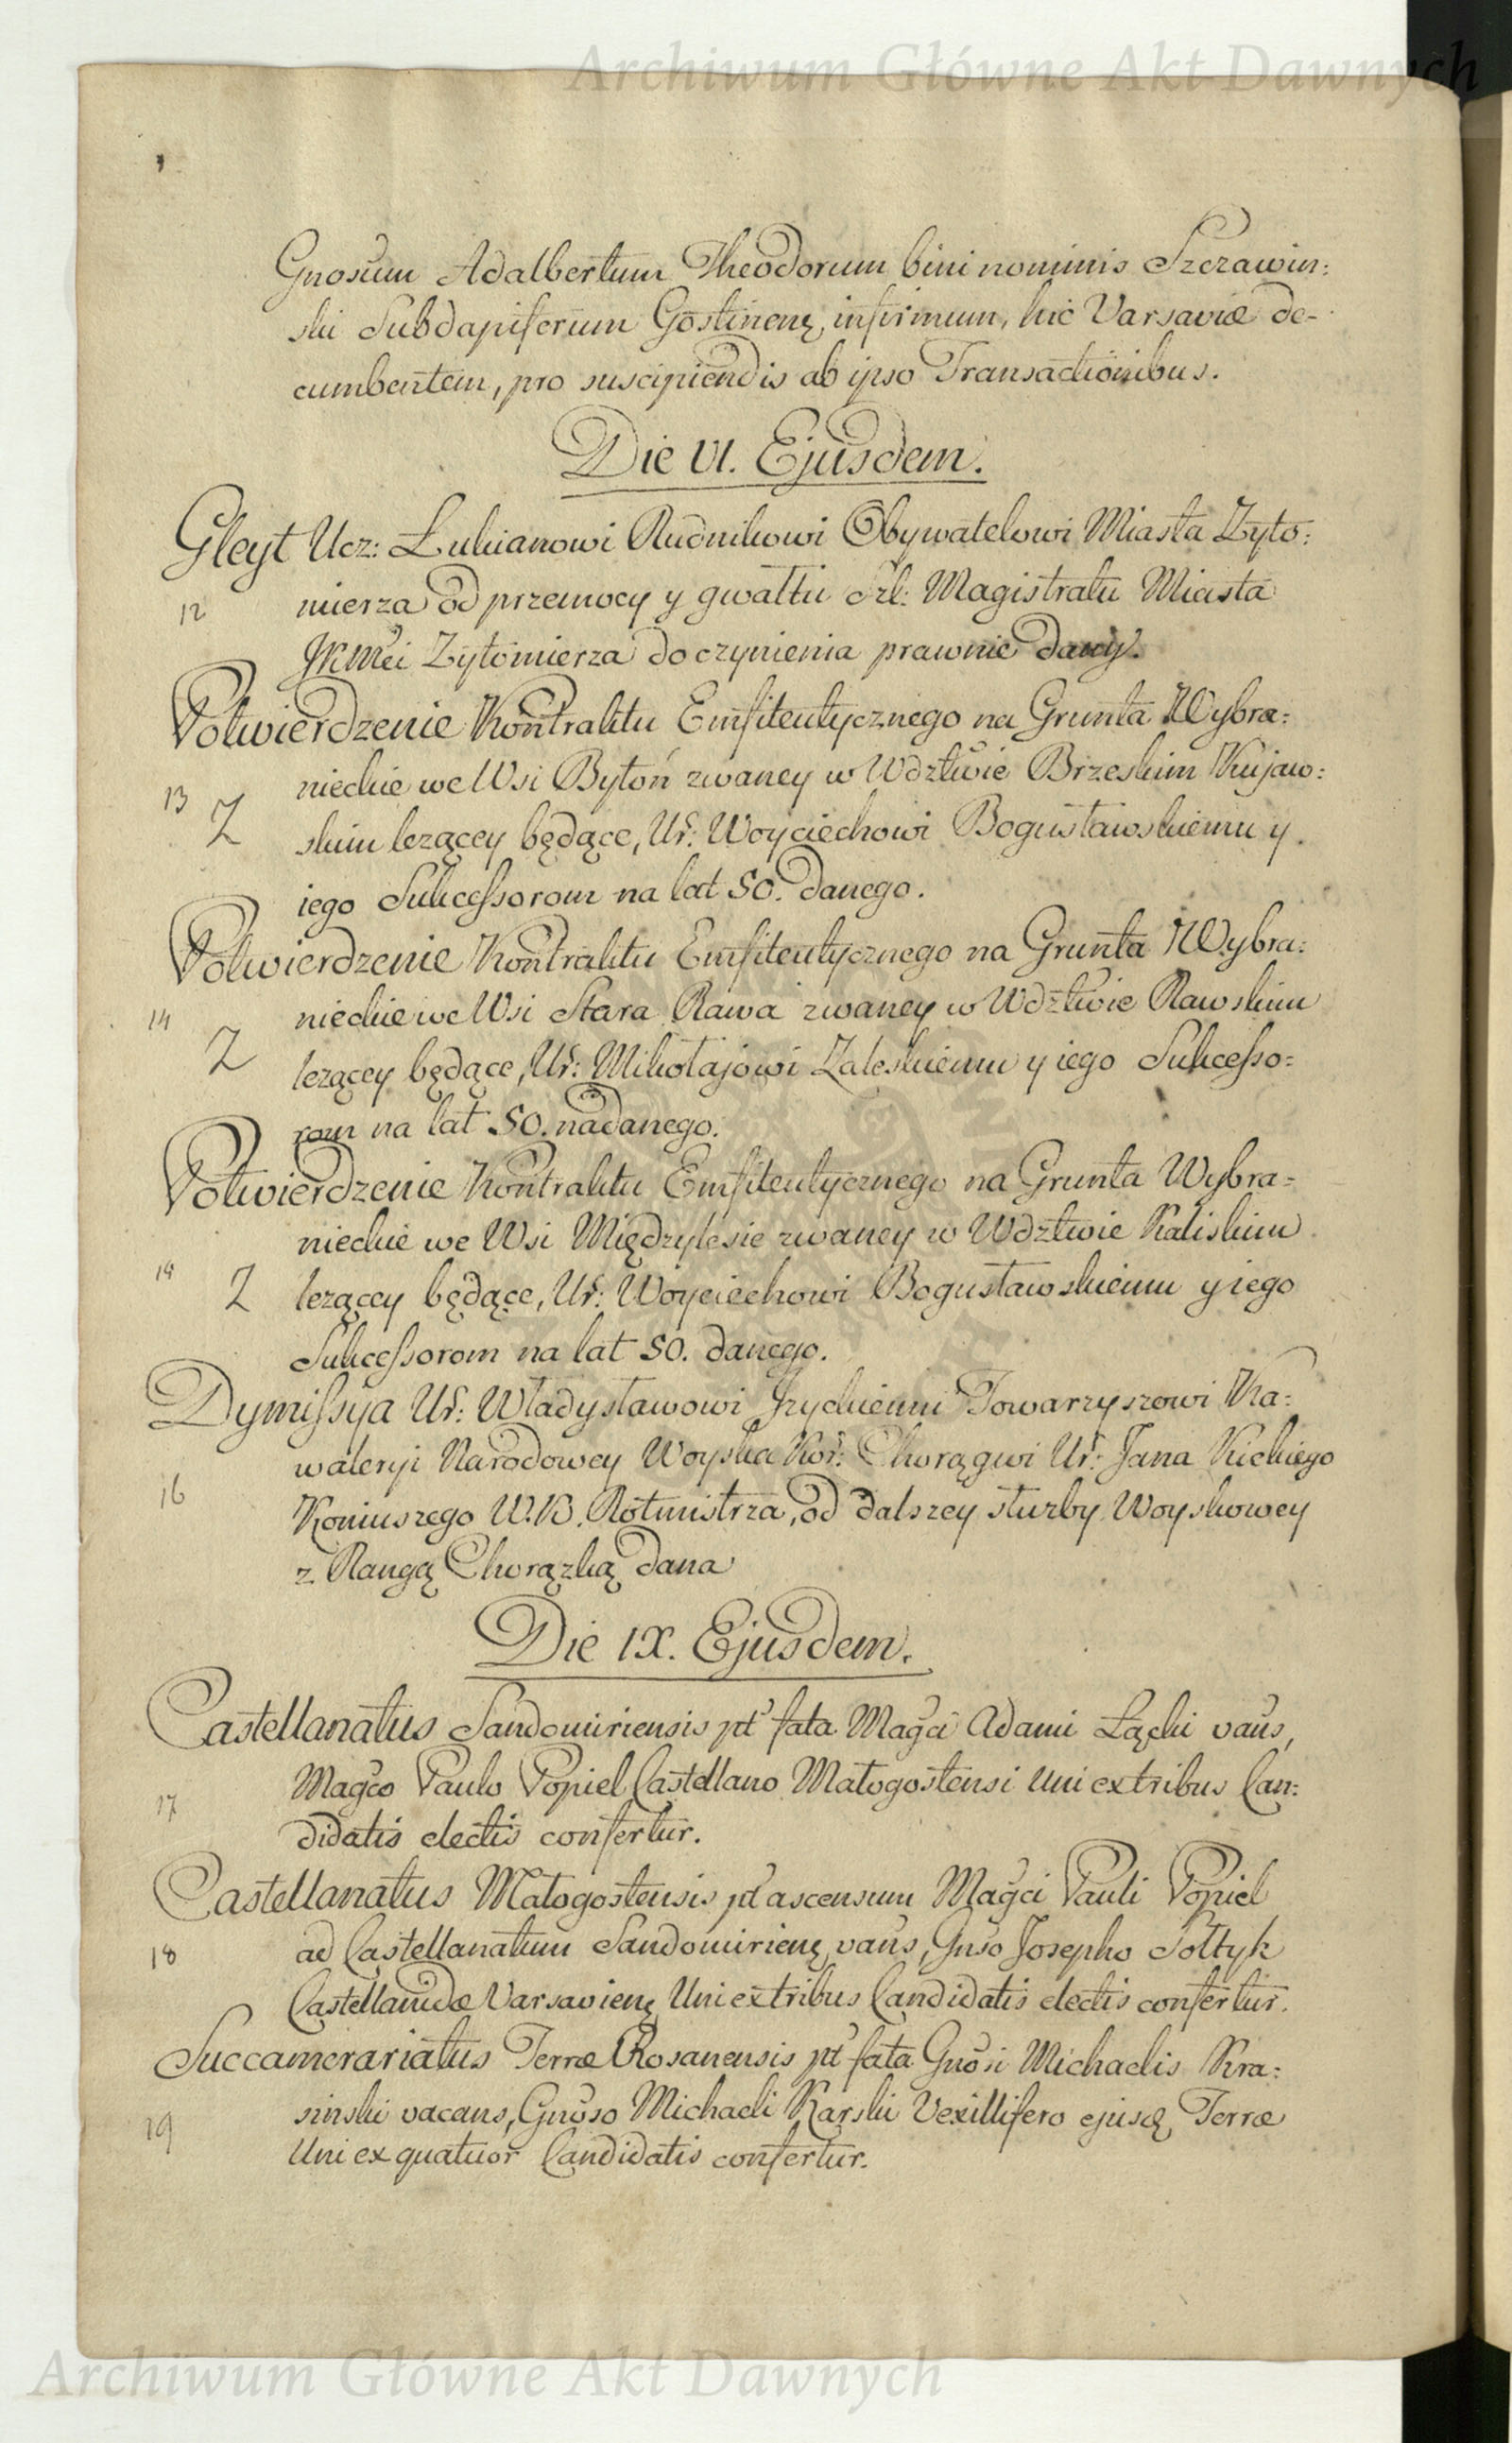 Archiwum Główne Akt Dawnych
Gnosum Adalbertum Theodorum bini nominis Szczawin:
ski Subdapiferum Gostinenę, infirmum, hic Varsaviæ de-
cumbentem, pro suscipiendis ab ipso Transactionibus.
Die VI. Ejusdem.
Gleyt Ucz: Łukianowi Rudnikowi Obywatelowi Miasta Zyto:
12 mierza od przemocy y gwałtu Szl: Magistratu Miasta
JKMci Zytomierza do czynienia prawnie dany.
Potwierdzenie Kontraktu Emfiteutycznego na Grunta Wybra:
nieckie we Wsi Bytoń zwaney w Wdztwie Brzeskim Kujaw:
13 Z skim lezącey będące, Ur: Woyciechowi Bogusławskiemu y
iego Sukcessorom na lat 50. danego.
Potwierdzenie Kontraktu Emfiteutycznego na Grunta Wybra:
nieckie we Wsi Stara Rawa zwaney w Wdztwie Rawskim
14 Z lezącey będące, Ur: Mikołajowi Zaleskiemu y iego Sukcesso:
rom na lat 50. nadanego.
Potwierdzenie Kontraktu Emfiteutycznego na Grunta Wybra=
nieckie we Wsi Międzylesie zwaney w Wdztwie Kaliskim
14 Z lezącey będące, Ur: Woyciechowi Bogusławskiemu y iego
Sukcessorom na lat 50. danego.
Dymissya Ur: Władysławowi Towarzyszowi Ka:
waleryi Narodowey Woyska Kor: Chorągwi Ur: Jana Kickiego
16 Koniuszego W.K. Rotmistrza, od dalszey służby Woyskowey
z Rangą Chorązką dana
Die IX. Ejusdem.
Castellanatus Sandomiriensis pt fata Magci Adami Łącki vans,
17 Magco Paulo Popiel Castellano Małogostensi Uni ex tribus Can:
didatis electis confertur.
Castellanatus Małogostensis pt ascensum Magci Pauli Popiel
18 ad Castellanatum Sandomirienę vans, Gnso Josepho Sołtyk
Castellanidæ Varsavienę Uni ex tribus Candidatis electis confertur.
Succamerariatus Terræ Rosanensis pt fata Gnosi Michaelis Kra:
19 sinski vacans, Gnoso Michaeli Karski Vexillifero ejusdę Terræ
Uni ex quatuor Candidatis confertur.
Archiwum Główne Akt Dawnych